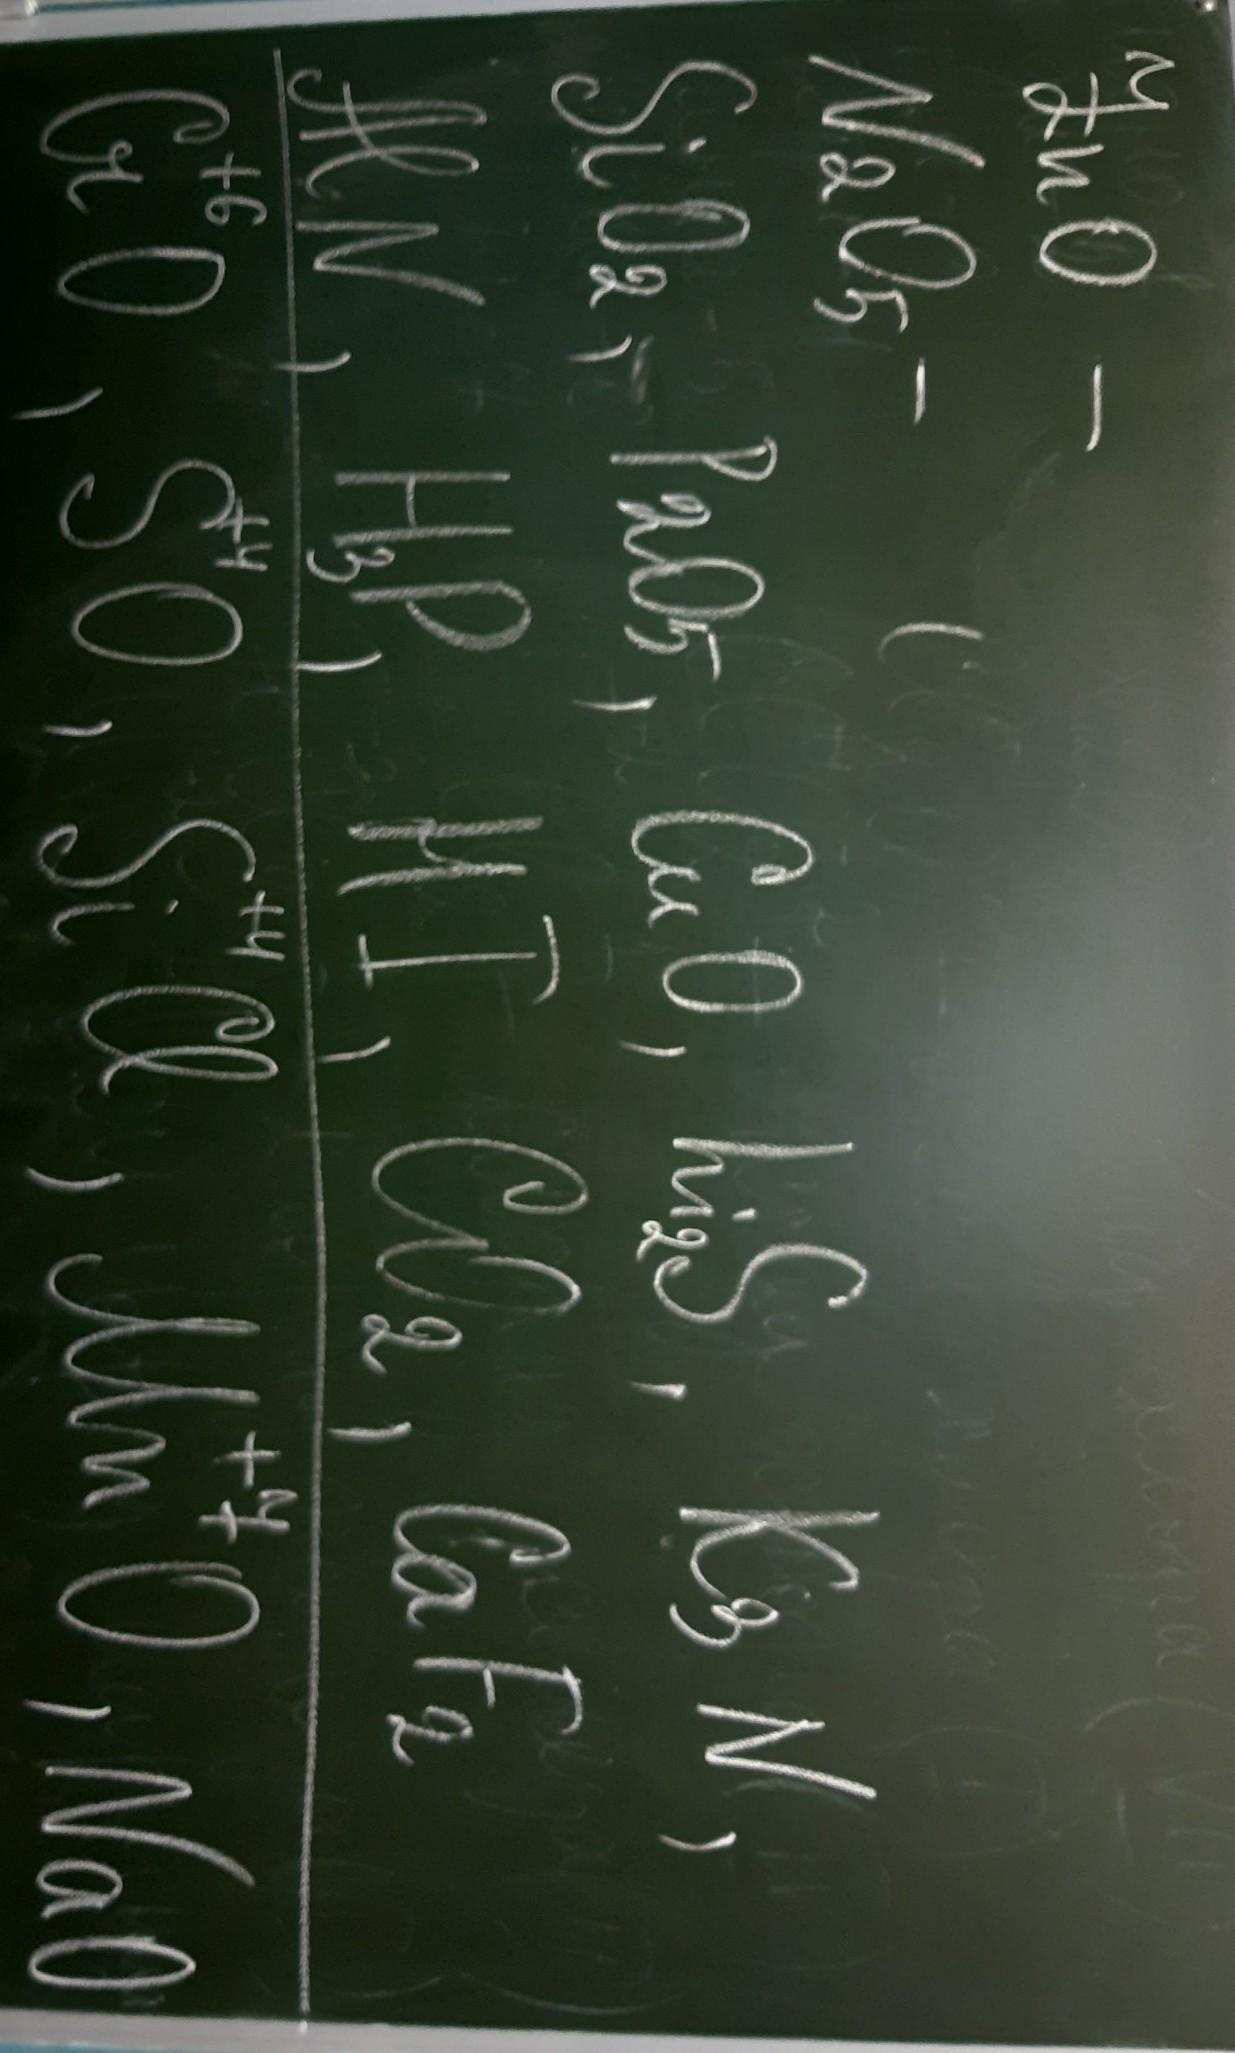 ZnO -
N2O5 -
SiO2, P2O5, CuO, Li2S, K3N,
AlN, H3P, HI, ClO2, CaF2
Cr+6O, S+4O, Si+4Cl, Mn+4O, NaO